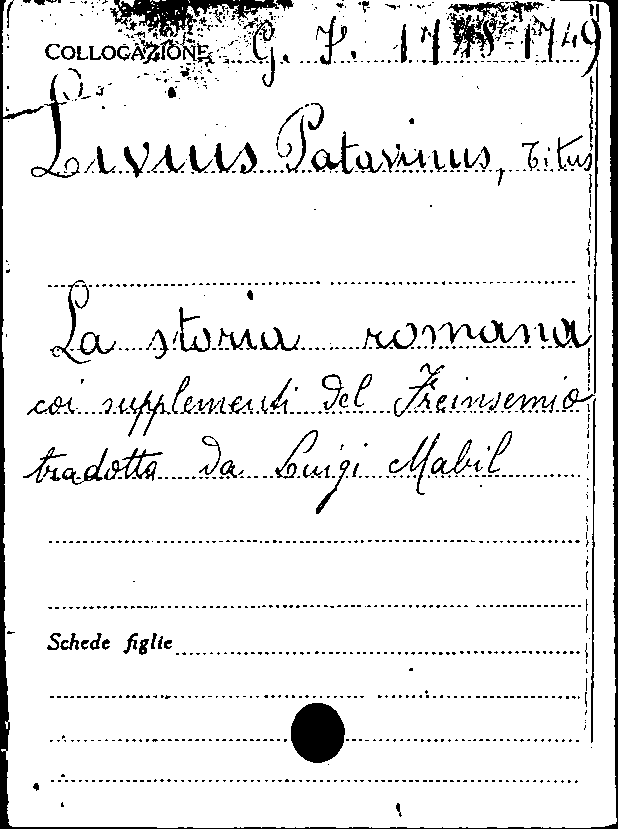 COLLOCAZIONE G. F. 1748-1749
Livius Patavinus, Titus
La storia romana
coi supplementi del Freinsemio
tradotta da Luigi Mabil
Schede figlie